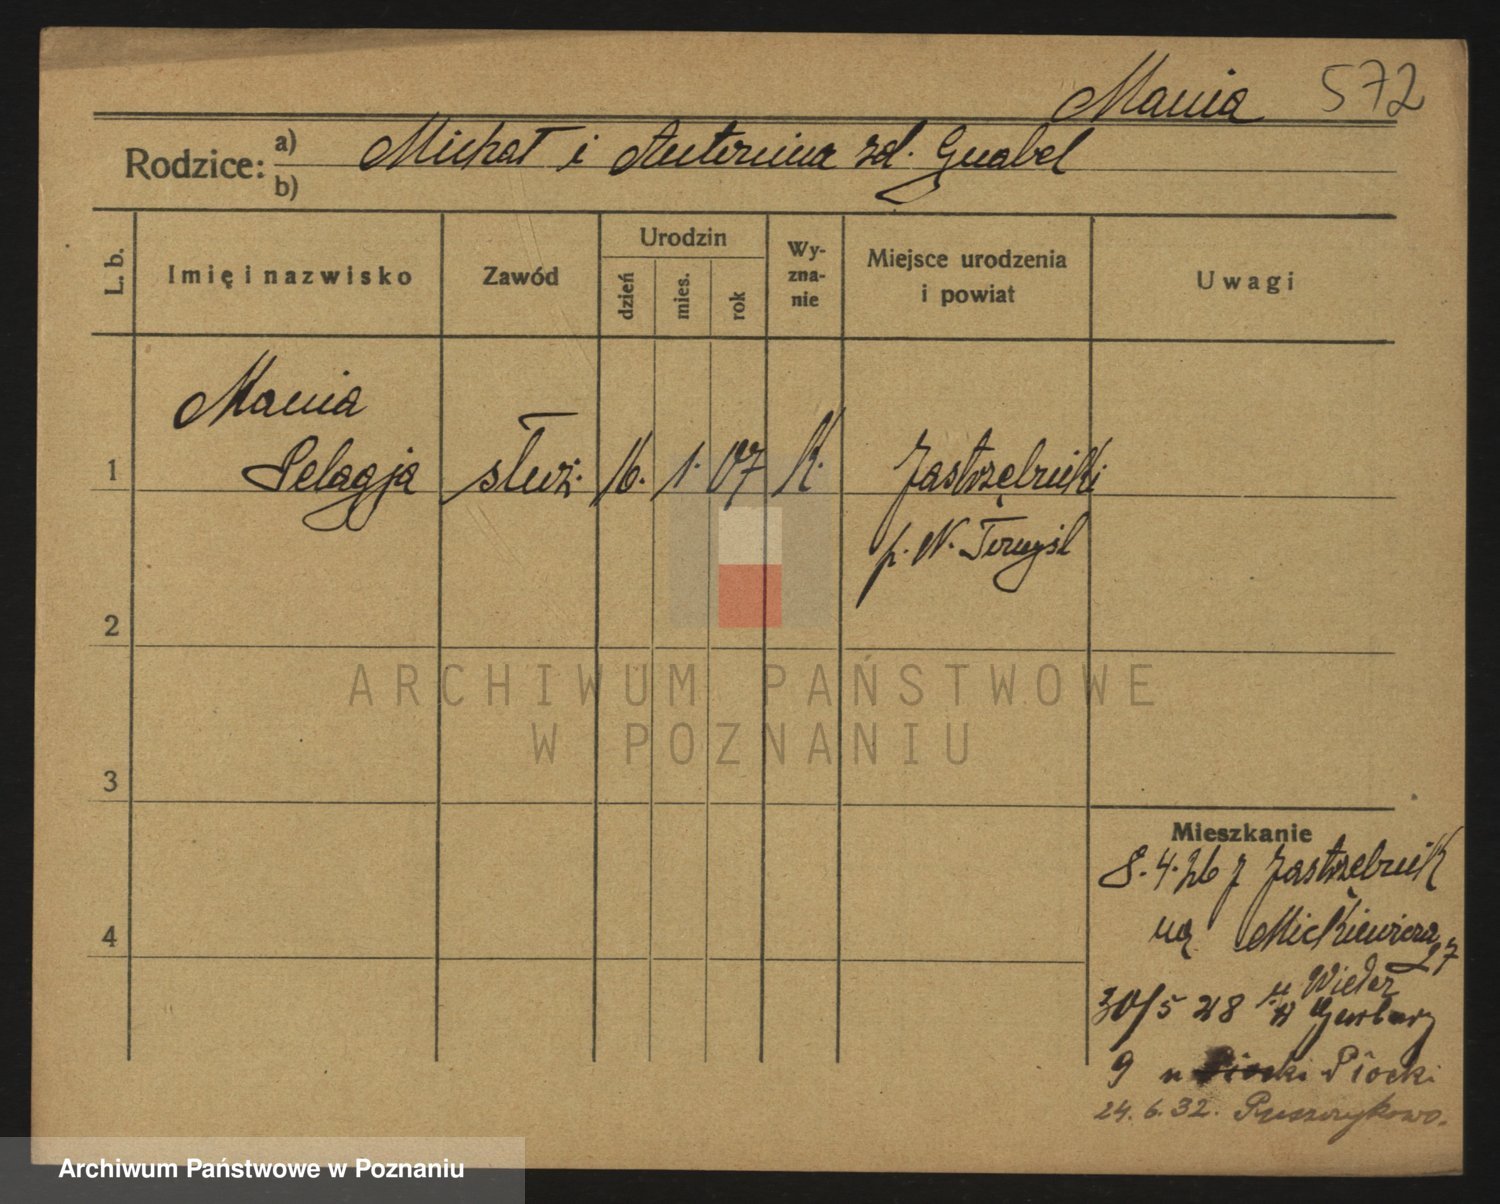 Mania 572
Rodzice: a) Michał i Antonina zd. Gnabel
b)
L. b.
Imię i nazwisko
Zawód
Urodzin
dzień
mies.
rok
Wy-
zna-
nie
Miejsce urodzenia
i powiat
Uwagi
Mania
1 Pelagja służ. 16. 1. 07 K. Jastrzębniki
p. N. Tomyśl
2
ARCHIWUM PAŃSTWOWE
W POZNANIU
3
Mieszkanie
8.4.26 z Jastrzębnik
na Mickiewicza 27
u Wieler
4
30/5 28
9 u Piocki
24.6.32. Puszczykowo.
Archiwum Państwowe w Poznaniu